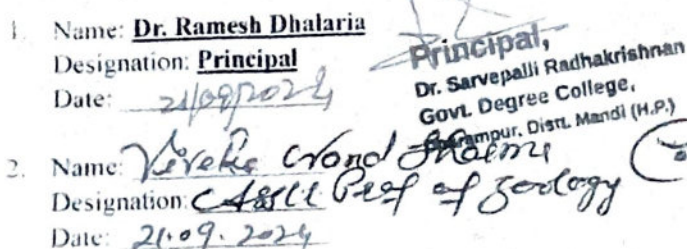 1. Name: Dr. Ramesh Dhalaria
Designation: Principal
Date: 21/09/2024
Principal,
Dr. Sarvepalli Radhakrishnan
Govt. Degree College,
Dharampur, Distt. Mandi (H.P.)
2. Name: Chand Sharma
Designation: Prof of Zoology
Date: 21.09.2024